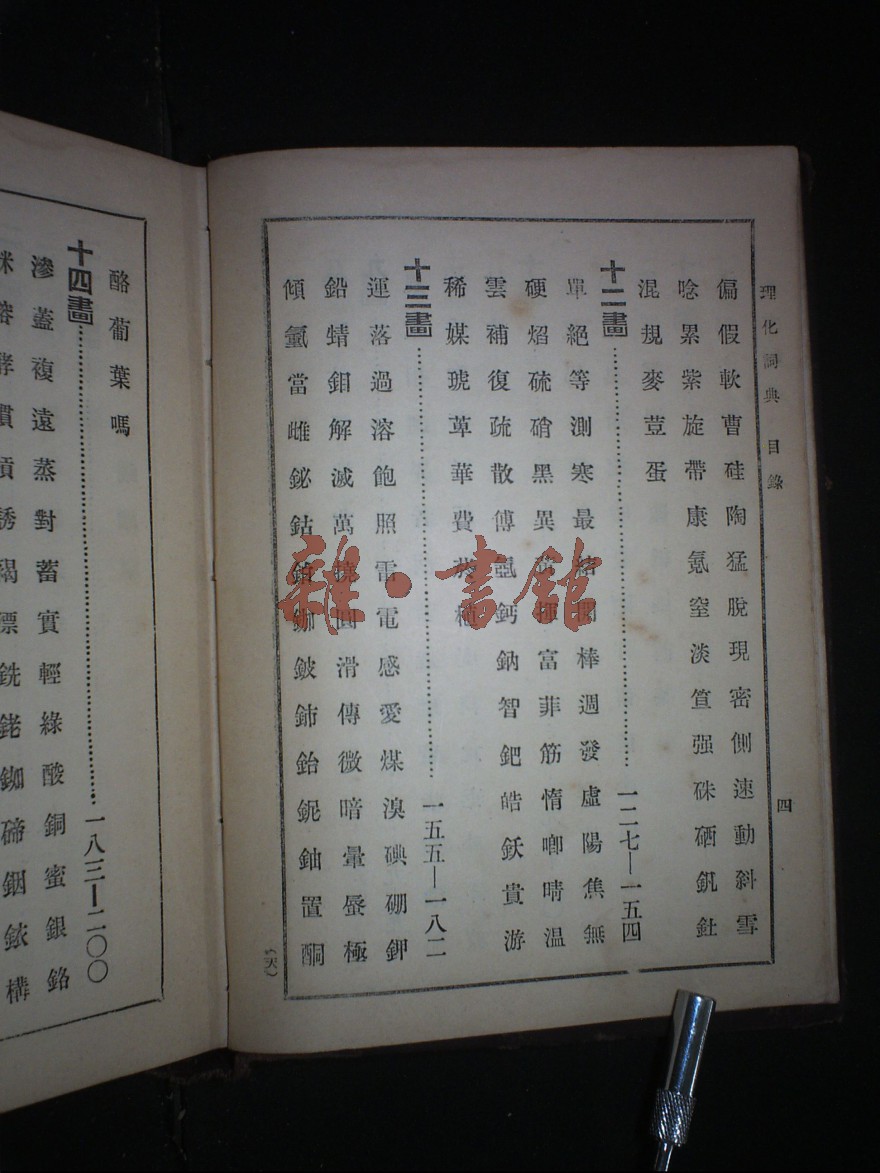 理化詞典 目錄
四
偏假軟曹硅陶猛脫現密側速動斜雪
唸累紫旋帶康氪窒淡笪强硃硒釩釷
混規麥荳蛋
十二畫……一二七—一五四
單絕等測寒最結棒週發虛陽焦無
硬焰硫硝黑異揮富菲筋惰啣晴温
雲補復疏散傅氬鈣鈉智鈀皓鈥貴游
稀媒琥萆華費
十三畫……一五五—一八二
運落過溶飽照雷電感愛煤溴碘硼鉀
鉛蜻鉬解滅萬撓圓滑傳微暗暈蜃極
傾氳當雌鉍鈷鉑鉫鈹鈰鉿鈮鈾置酮
酪葡葉嗎
十四畫……一八三—二〇〇
滲蓋複遠蒸對蓄實輕綠酸銅蜜銀鉻
銑銠銣碲銦銥構
雜·書館